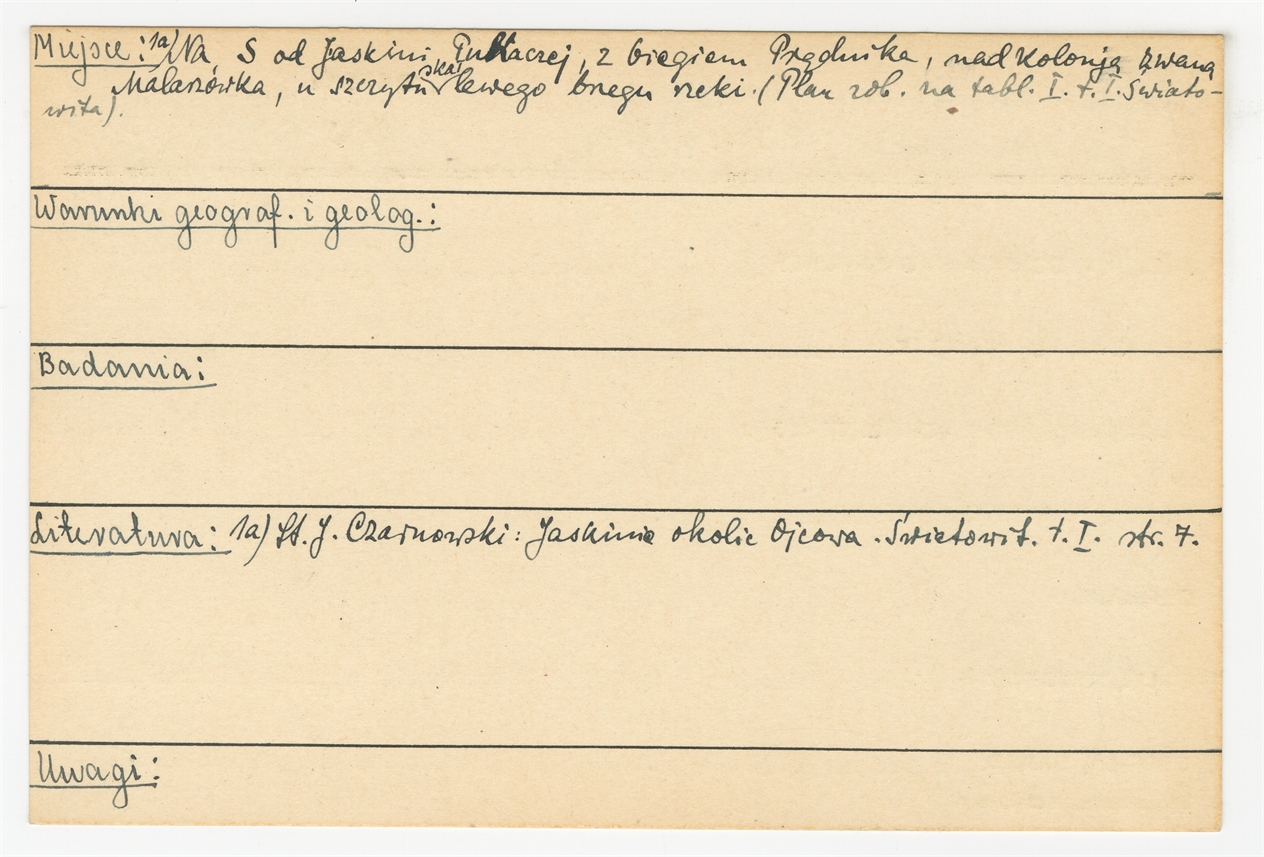 Miejsce: 1a) Na S od Jaskini Tunkaczej, z biegiem Prądnika, nad kolonją zwaną
Małaszówka, u szczytu skał lewego brzegu rzeki. (Plan zob. na tabl. I. t. I. Świato-
wita).
Warunki geograf. i geolog.:
Badania:
Literatura: 1a) St. J. Czarnowski: Jaskinie okolic Ojcowa. Światowit. t. I. str. 7.
Uwagi: